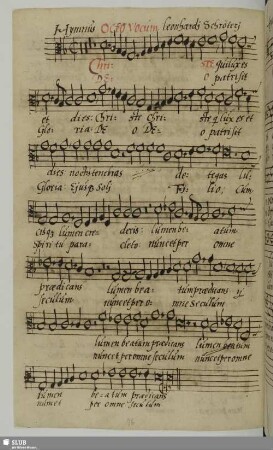 Hymnus Octo Vocum leonhardi Schröteri
Chri: STE qui lux es
DE: O patri sit
et dies: Chri: ste Chri: ste q lux es et
Glo: ria DE: O DE: o patri sit
dies noctis tenebras de: tegis lu:
Gloria Eiusq; Soli Fi: lio, Cum
cisq; lumen cre deris: lumen be: atum
Spiritu para: cleto nunc et per omne
prædicans lumen bea: tum prædicans
seculum nunc et per o: mne seculum
lumen beatum prædicans lumen beatum
nunc et per omne seculum nunc et per omne
lumen be: atum prædicans
nunc et per omne seculum
SLUB